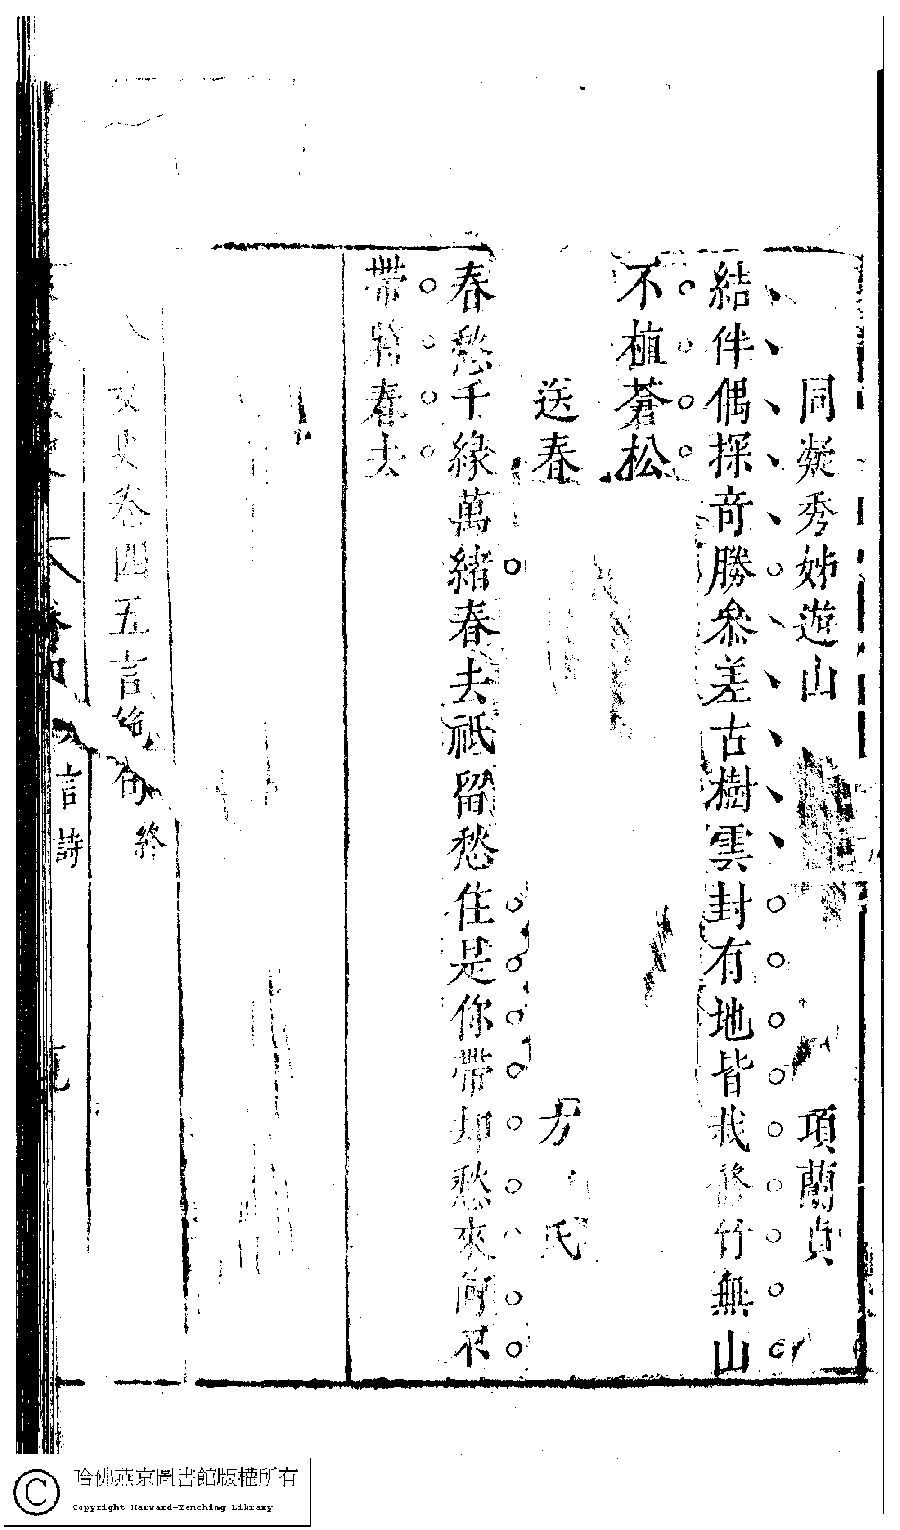 同凝秀姊遊山 項蘭貞
結伴偶探奇勝叅差古樹雲封有地皆栽脩竹無山
不植蒼松
送春 方氏
春愁千緣萬緒春去祗留愁住是你帶却愁來何不
帶將春去
女史卷四五言絶句終
言詩
哈佛燕京圖書館版權所有
Copyright Harvard-Yenching Library